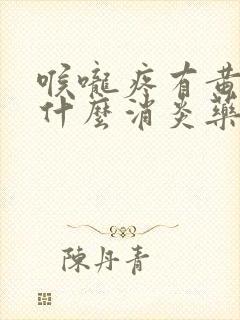 喉嚨疼有黃
什麼消炎藥
陳丹青